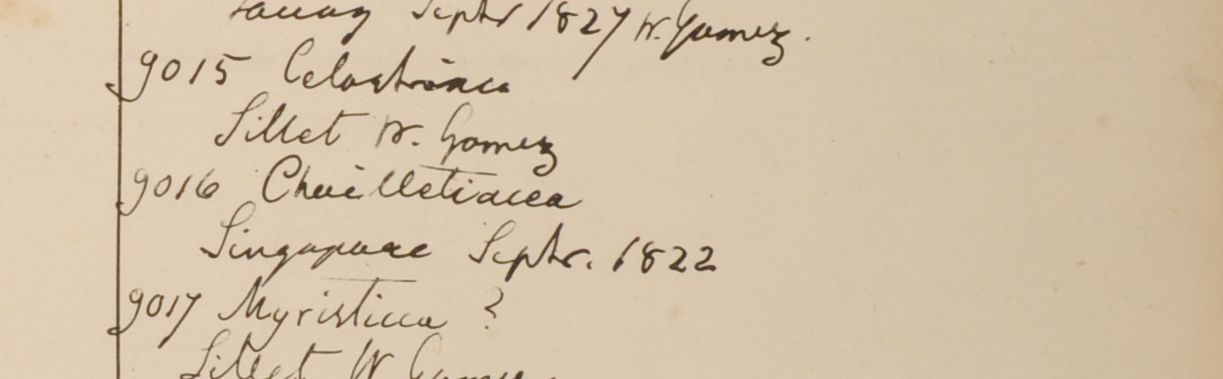 Tavoy Septr 1827 W. Gomez.
9015 Celastrinea
Sillet W. Gomez
9016 Chailletiacea
Singapore Septr. 1822
9017 Myristicea ?
Sillet W Gomez